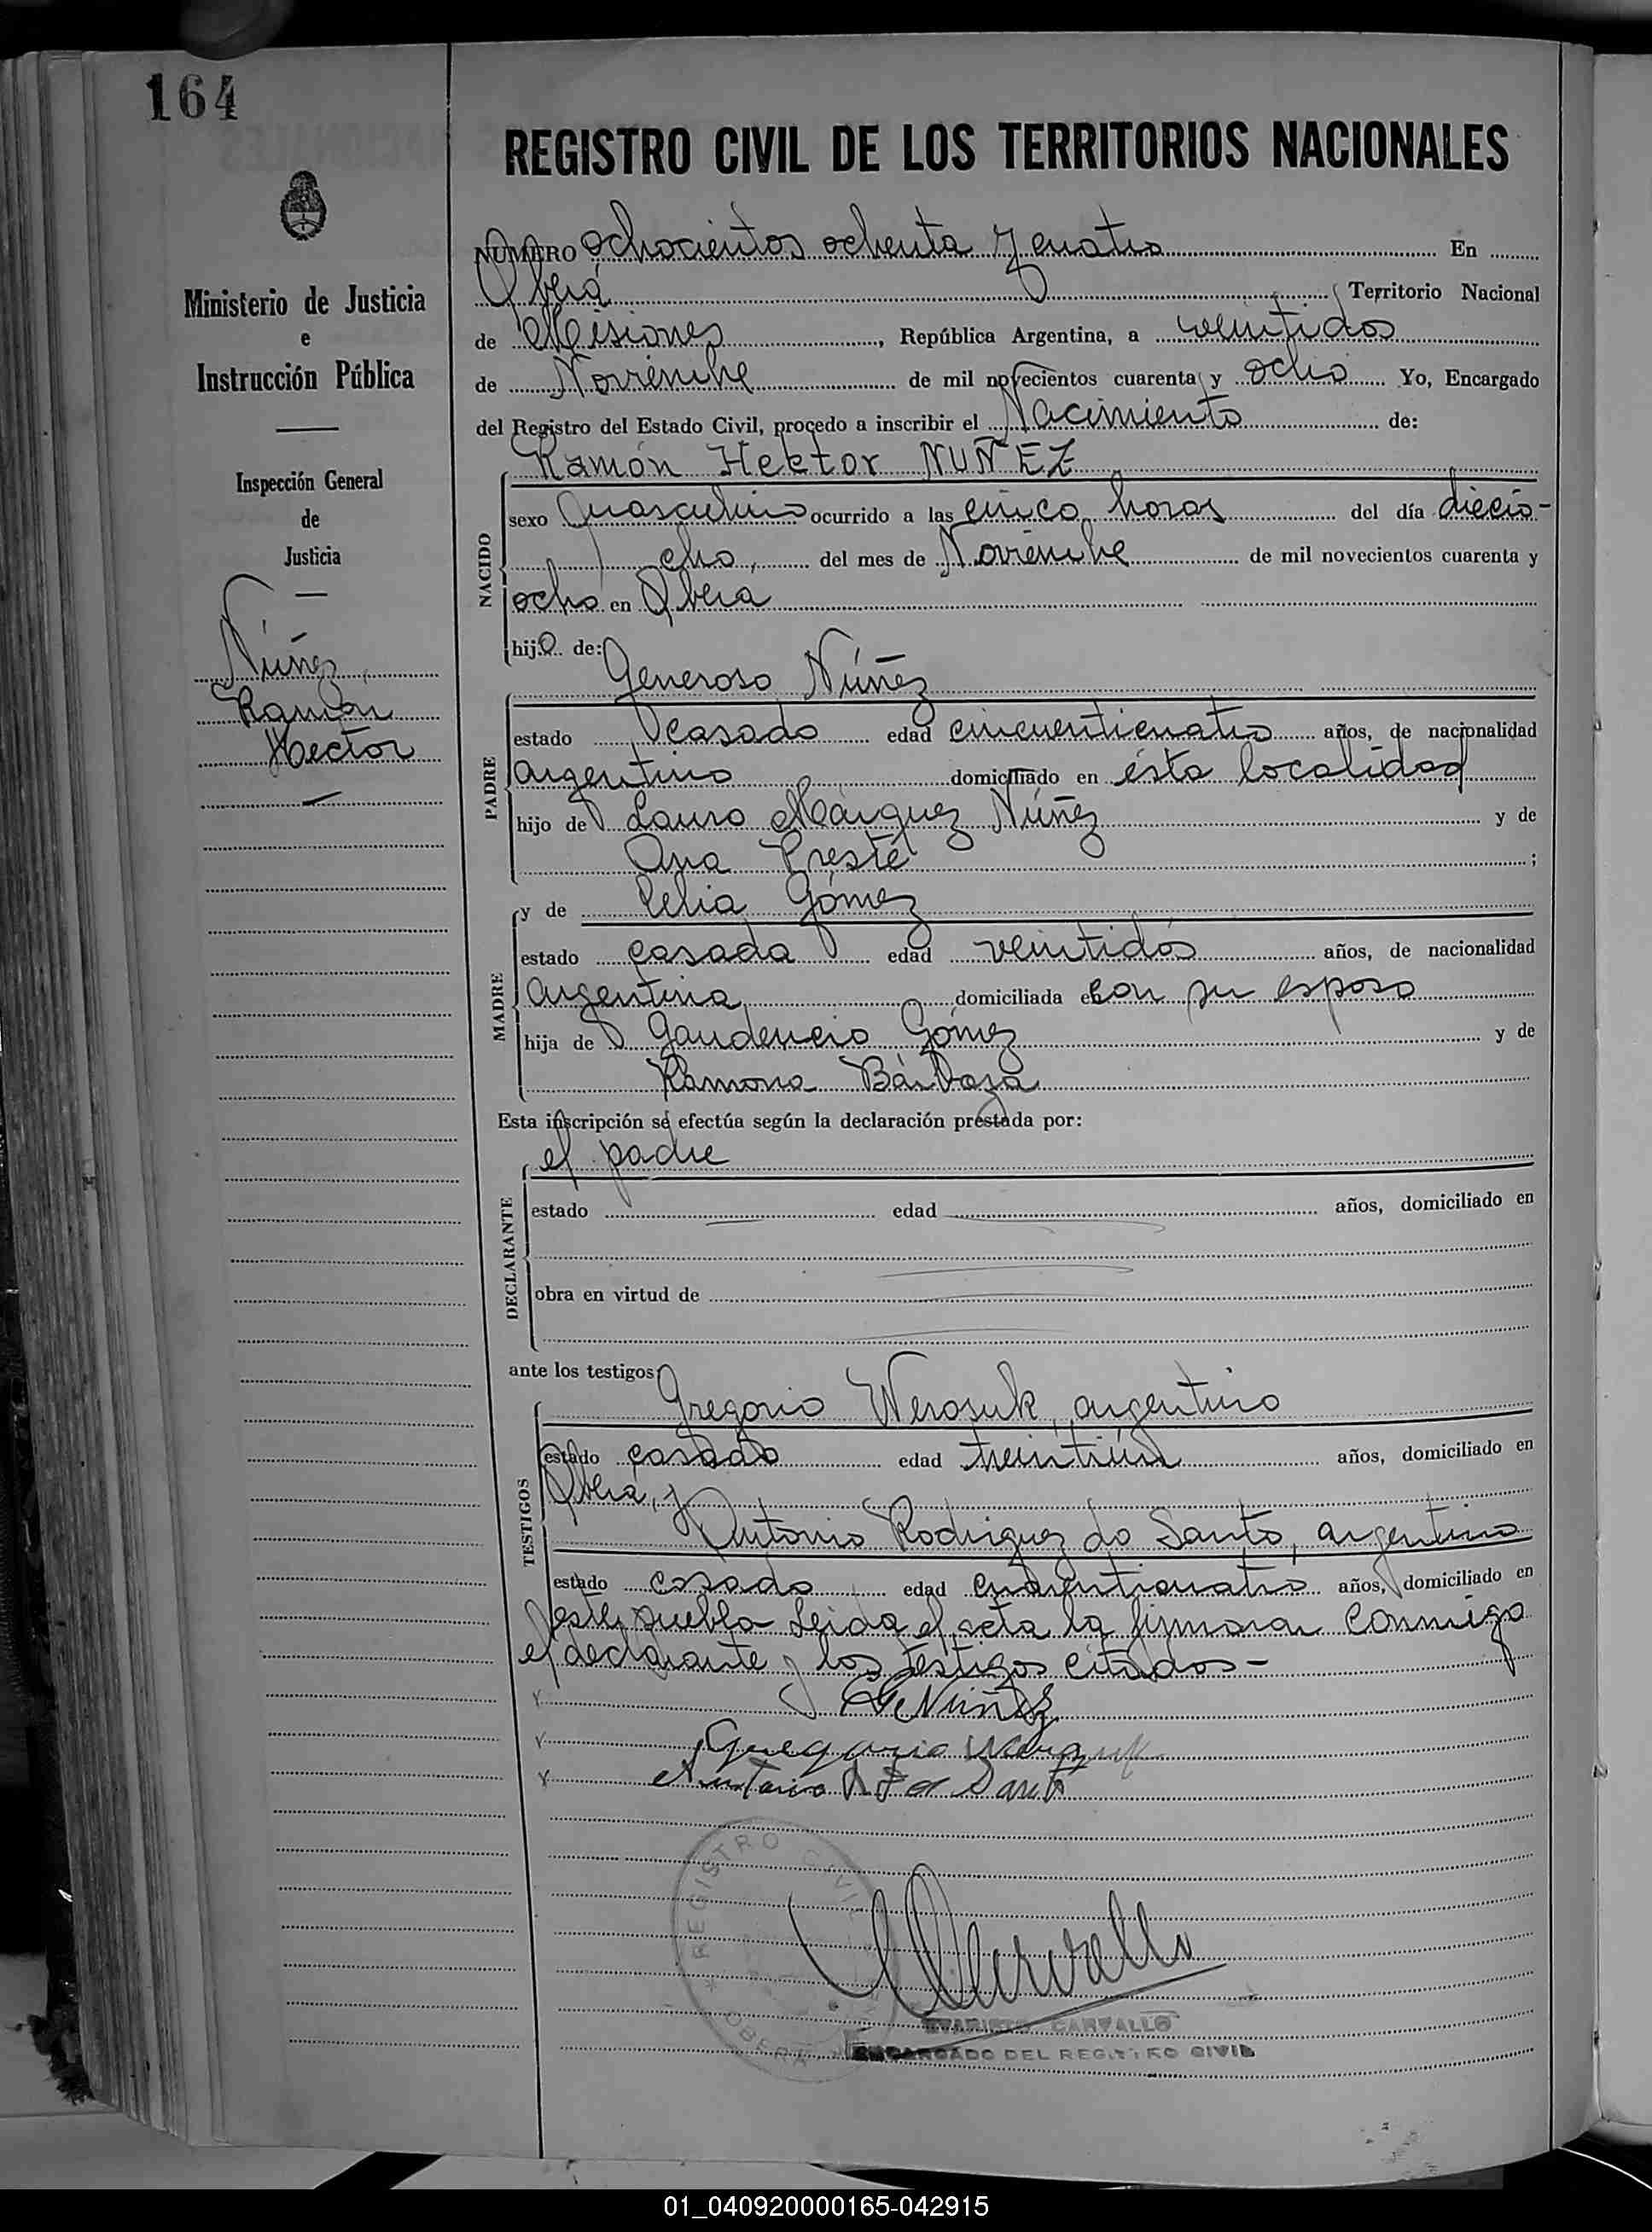 164
REGISTRO CIVIL DE LOS TERRITORIOS NACIONALES
Ministerio de Justicia
e
Instrucción Pública
Inspección General
de
Justicia
Núñez
Ramón
Hector
NUMERO ochocientos ochenta y cuatro En
Oberá Territorio Nacional
de Misiones, República Argentina, a veintidos
de Noviembre de mil novecientos cuarenta y ocho Yo, Encargado
del Registro del Estado Civil, procedo a inscribir el Nacimiento de:
Ramón Hektor NUÑEZ
NACIDO
sexo masculino ocurrido a las cinco horas del día diecio-
cho, del mes de Noviembre de mil novecientos cuarenta y
ocho en Oberá
hijo de:
Generoso Núñez
PADRE
estado casado edad cincuenticuatro años, de nacionalidad
argentino domiciliado en ésta localidad
hijo de Lauro Márquez Núñez y de
Ana Presté;
y de Celia Gómez
MADRE
estado casada edad veintidós años, de nacionalidad
argentina domiciliada con su esposo
hija de Gaudencio Gómez y de
Ramona Bárboza
Esta inscripción se efectúa según la declaración prestada por:
el padre
DECLARANTE
estado edad años, domiciliado en
obra en virtud de
ante los testigos
Gregorio Werosuk, argentino
TESTIGOS
estado casado edad treintiún años, domiciliado en
Oberá, y
Antonio Rodriguez do Santo, argentino
estado casado edad años, domiciliado en
este pueblo Leida el acta la firmaran conmigo
el declarante y los testigos citados-
G Nuñez
Gregorio
Antonio
REGISTRO CIVIL
OBERA
EVARISTO CARVALLO
ENCARGADO DEL REGISTRO CIVIL
01_040920000165-042915